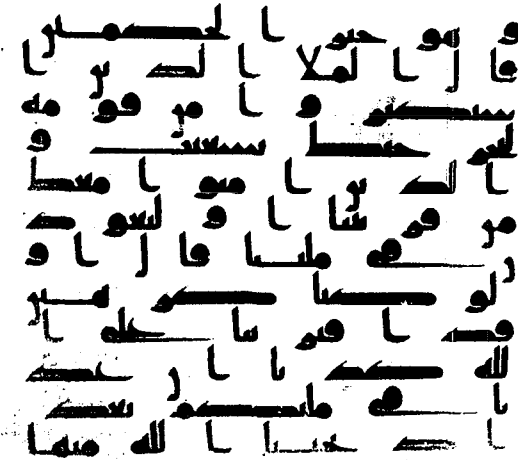 و هو خير ا لحكمين
قا ل ا لملا ا لذ ين ا
ستكبر و ا من قو مه
لنخر جنك يشعيب و
ا لذ ين ا منو ا معك
من قر يتنا ا و لتعود
ن في ملتنا قا ل ا و
لو كنا كر هين
قد ا فتر ينا على ا
لله كذبا ا ن عد
نا في ملتكم بعد
ا ذ نجينا ا لله منها